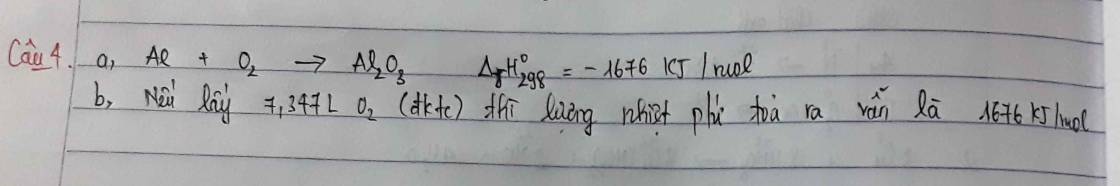 Câu 4. a, Al + O₂ → Al₂O₃ ΔrH°₂₉₈ = -1676 KJ/mol
b, Nếu lấy 7,347L O₂ (đktc) thì lượng nhiệt phí toả ra vẫn là 1676 KJ/mol